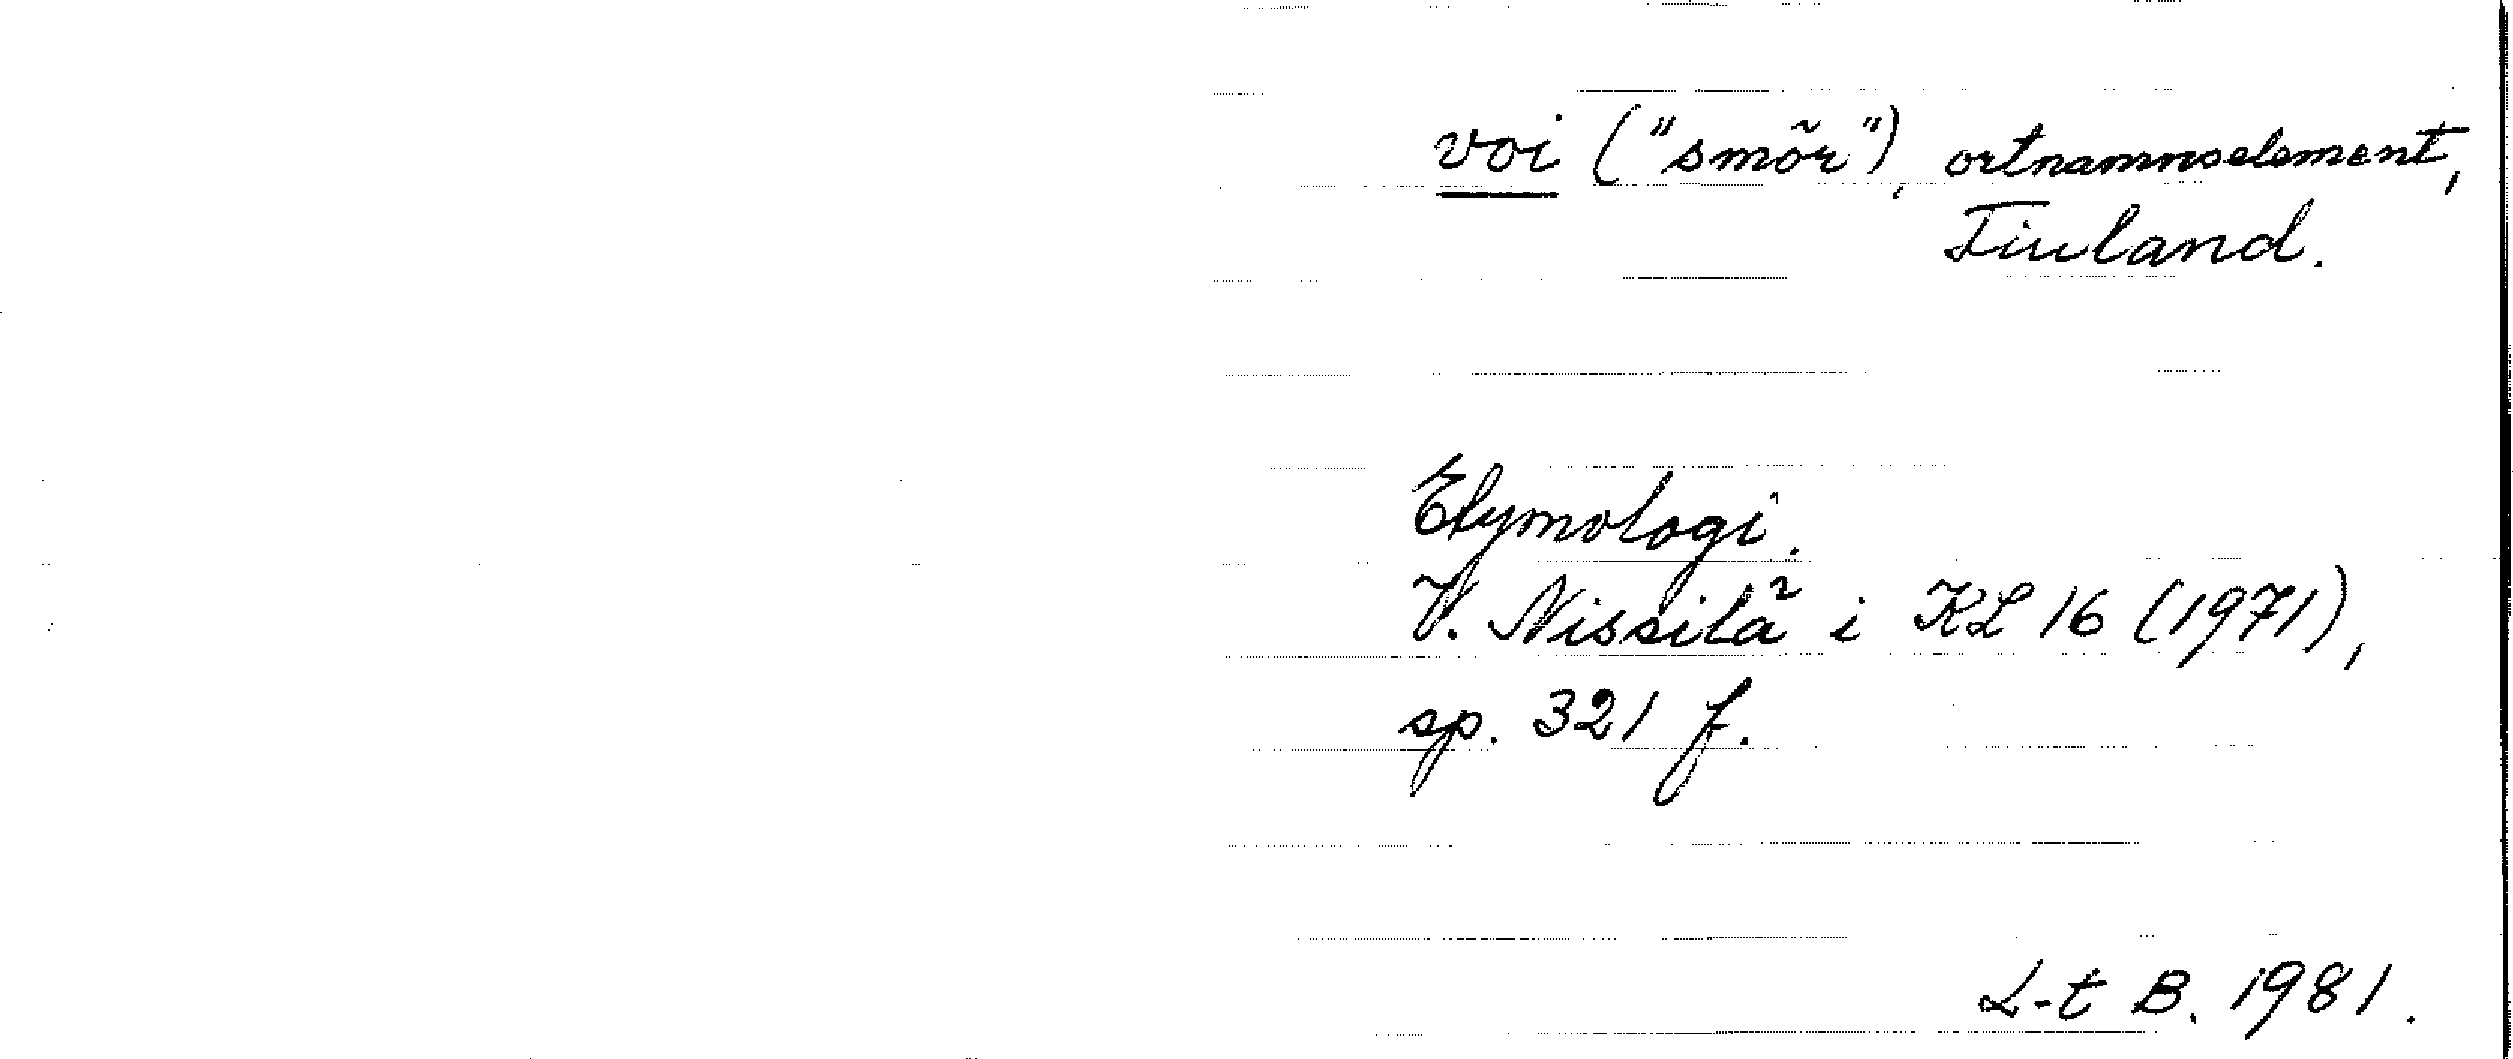 voi ("smör"), ortnamnselement,
Finland.
Etymologi.
V. Nissilä i KL 16 (1971),
sp. 321 f.
L-t B. 1981.